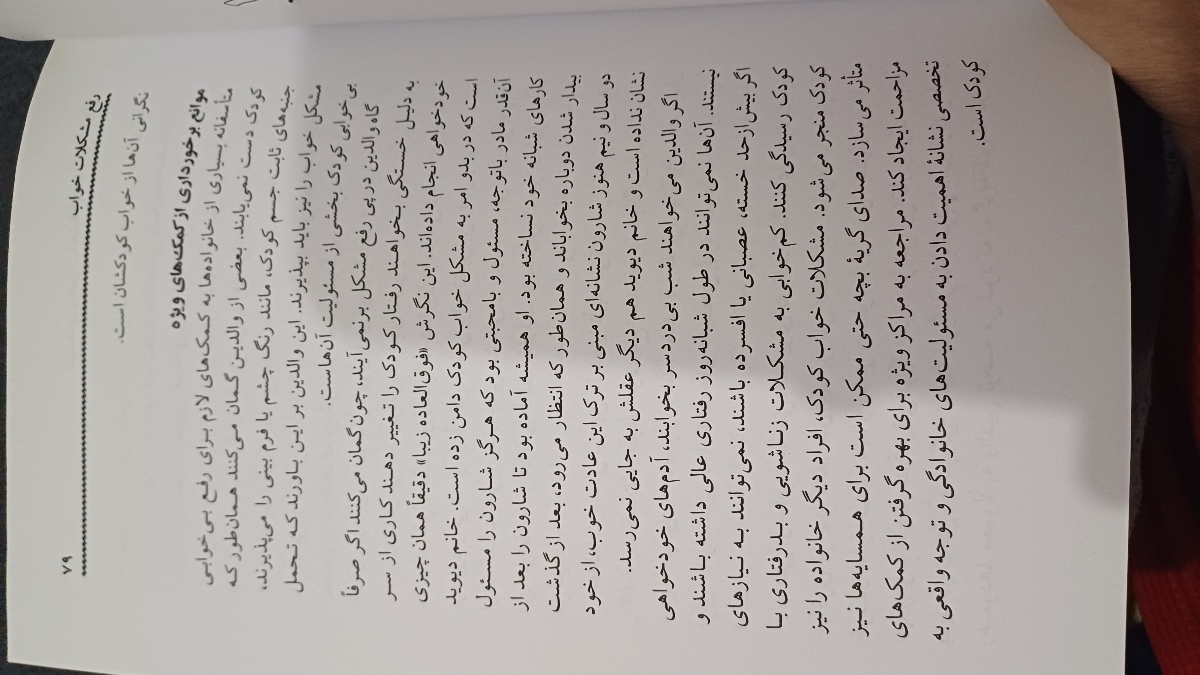 رفع مشکلات خواب
۷۹
نگرانی آن‌ها از خواب کودکشان است.
موانع برخورداری از کمک‌های ویژه
متأسفانه بسیاری از خانواده‌ها به کمک‌های لازم برای رفع بی‌خوابی
کودک دست نمی‌یابند. بعضی از والدین گمان می‌کنند همان‌طور که
جنبه‌های ثابت جسم کودک، مانند رنگ چشم یا فرم بینی را می‌پذیرند،
مشکل خواب را نیز باید بپذیرند. این والدین بر این باورند که تحمل
بی‌خوابی کودک بخشی از مسئولیت آن‌هاست.
گاه والدین در پی رفع مشکل برنمی‌آیند، چون گمان می‌کنند اگر صرفاً
به دلیل خستگی بخواهند رفتار کودک را تغییر دهند کاری از سر
خودخواهی انجام داده‌اند. این نگرش «فوق‌العاده زیبا» دقیقاً همان چیزی
است که در بدو امر به مشکل خواب کودک دامن زده است. خانم دیوید
آن‌قدر مادر باتوجه، مسئول و بامحبتی بود که هرگز شارون را مسئول
کارهای شبانه خود نساخته بود. او همیشه آماده بود تا شارون را بعد از
بیدار شدن دوباره بخواباند و همان‌طور که انتظار می‌رود، بعد از گذشت
دو سال و نیم هنوز شارون نشانه‌ای مبنی بر ترک این عادت خوب، از خود
نشان نداده است و خانم دیوید هم دیگر عقلش به جایی نمی‌رسد.
اگر والدین می‌خواهند شب بی‌دردسر بخوابند، آدم‌های خودخواهی
نیستند. آن‌ها نمی‌توانند در طول شبانه‌روز رفتاری عالی داشته باشند و
اگر بیش از حد خسته، عصبانی یا افسرده باشند، نمی‌توانند به نیازهای
کودک رسیدگی کنند. کم‌خوابی به مشکلات زناشویی و بدرفتاری با
کودک منجر می‌شود. مشکلات خواب کودک، افراد دیگر خانواده را نیز
متأثر می‌سازد. صدای گریهٔ بچه حتی ممکن است برای همسایه‌ها نیز
مزاحمت ایجاد کند. مراجعه به مراکز ویژه برای بهره گرفتن از کمک‌های
تخصصی نشانهٔ اهمیت دادن به مسئولیت‌های خانوادگی و توجه واقعی به
کودک است.